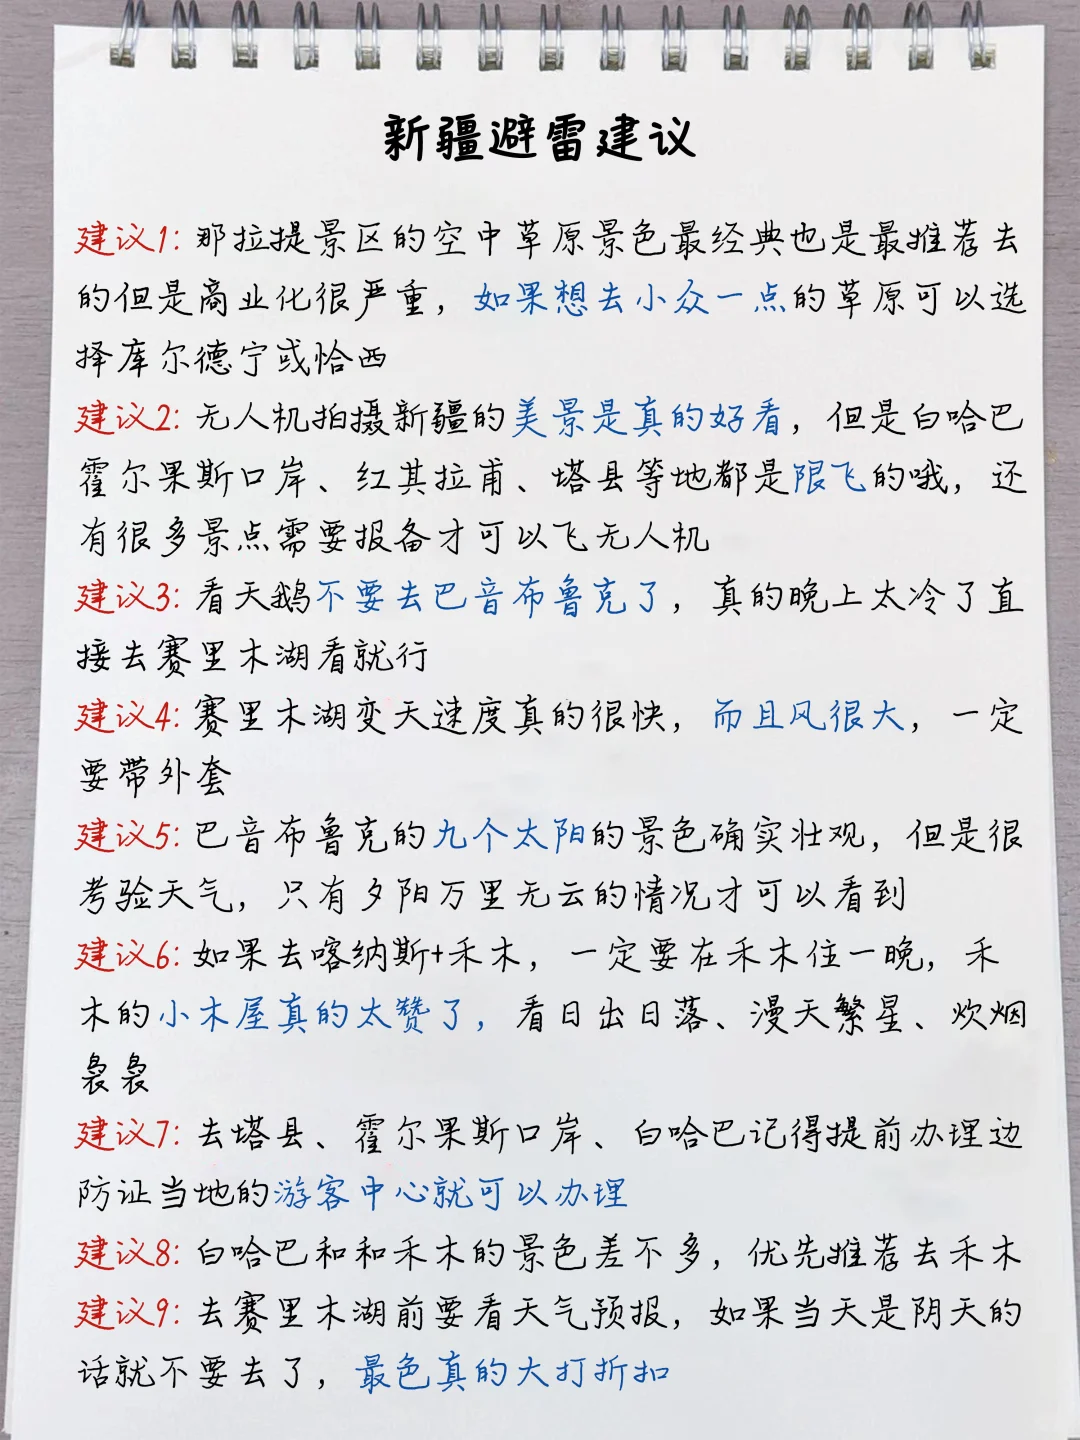 新疆避雷建议
建议1: 那拉提景区的空中草原景色最经典也是最推荐去
的但是商业化很严重，如果想去小众一点的草原可以选
择库尔德宁或恰西
建议2: 无人机拍摄新疆的美景是真的好看，但是白哈巴
霍尔果斯口岸、红其拉甫、塔县等地都是限飞的哦，还
有很多景点需要报备才可以飞无人机
建议3: 看天鹅不要去巴音布鲁克了，真的晚上太冷了直
接去赛里木湖看就行
建议4: 赛里木湖变天速度真的很快，而且风很大，一定
要带外套
建议5: 巴音布鲁克的九个太阳的景色确实壮观，但是很
考验天气，只有夕阳万里无云的情况才可以看到
建议6: 如果去喀纳斯+禾木，一定要在禾木住一晚，禾
木的小木屋真的太赞了，看日出日落、漫天繁星、炊烟
袅袅
建议7: 去塔县、霍尔果斯口岸、白哈巴记得提前办理边
防证当地的游客中心就可以办理
建议8: 白哈巴和和禾木的景色差不多，优先推荐去禾木
建议9: 去赛里木湖前要看天气预报，如果当天是阴天的
话就不要去了，最色真的大打折扣